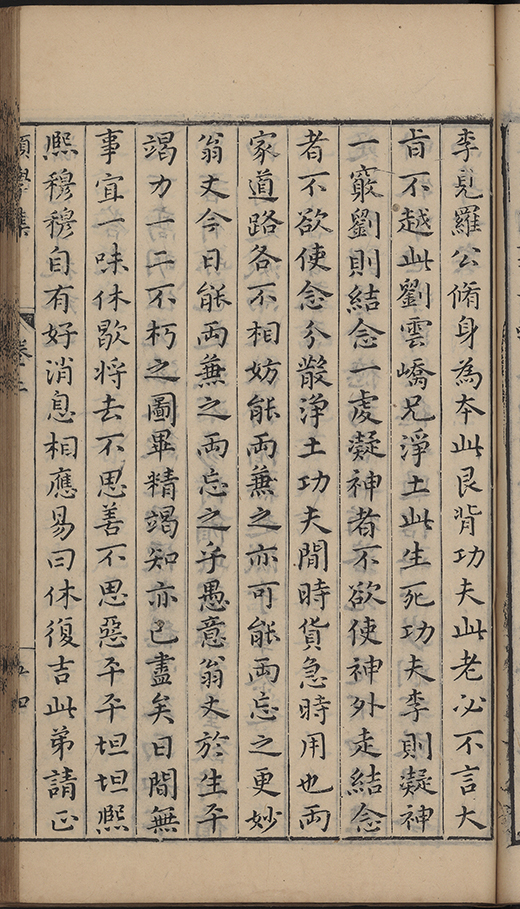 李見羅公脩身為本此艮背功夫此老必不言大
旨不越此劉雲嶠兄淨土此生死功夫李則凝神
一竅劉則結念一處凝神者不欲使神外走結念
者不欲使念分散淨土功夫閒時貨急時用也兩
家道路各不相妨能兩兼之亦可能兩忘之更妙
翁丈今日能兩兼之兩忘之乎愚意翁丈於生平
竭力一二不朽之圖畢精竭知亦已盡矣日間無
事宜一味休歇将去不思善不思惡平平坦坦熈
熈穆穆自有好消息相應易曰休復吉此弟請正
願學集
卷三